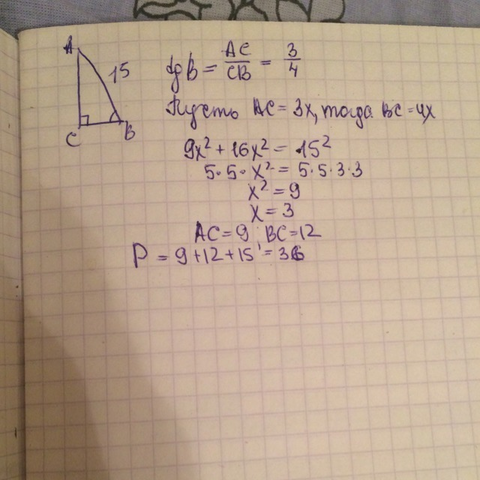 A
15
C
B
tgB = AC/CB = 3/4
Пусть AC = 3x, тогда BC = 4x
9x² + 16x² = 15²
5·5·x² = 5·5·3·3
x² = 9
x = 3
AC = 9 BC = 12
P = 9 + 12 + 15 = 36